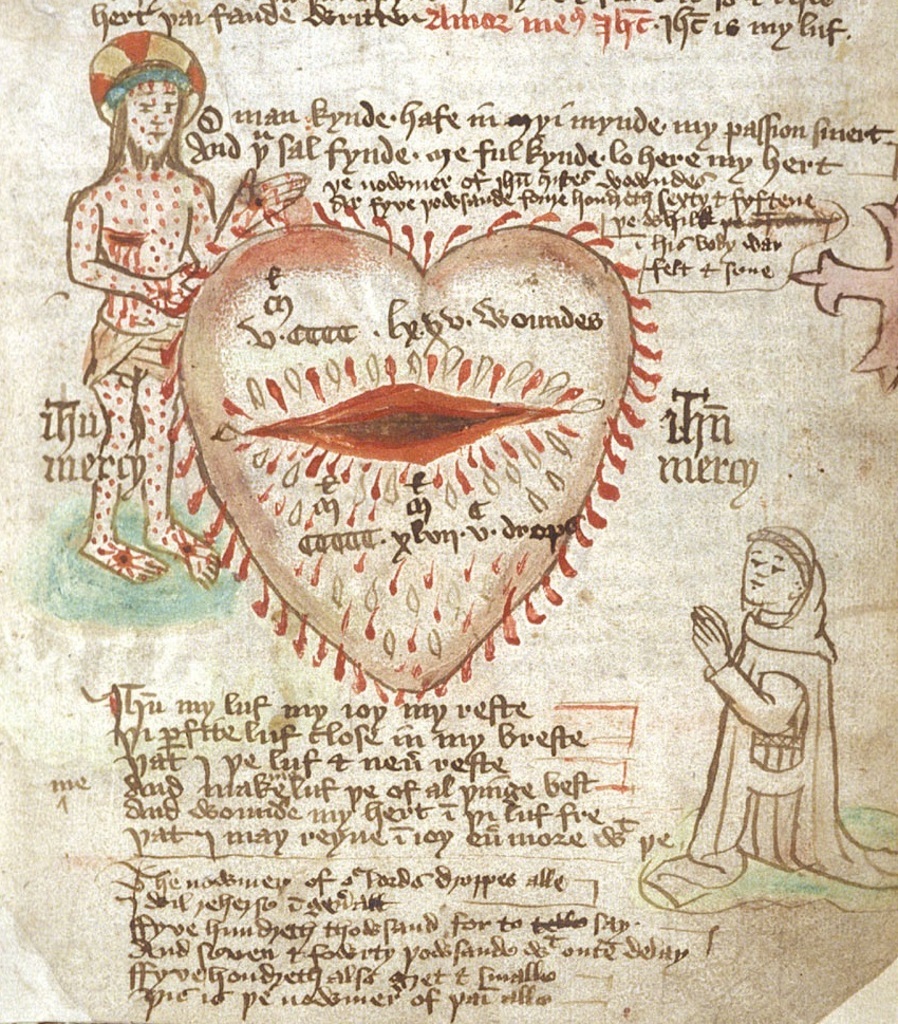 hert þai fande written Amor meus Ihc. Ihc is my luf.
O man kynde. hafe in myi mynde. my passion smert
And þu sal fynde. me ful kynde. lo here my hert
þe nowmer of ihu wowndes
Ar fyve þowsande foure hondreth sexty & fyftene
þe whilk
i his body war
felt & sene
v. cccc. lxxv. woundes
ihu
mercy
ihu
mercy
ccccc. xlvii. v. drops
Ihu my luf my ioy my reste
þi perfite luf close in my breste
þat I þe luf & neuer reste
And make me luf þe of al þinge best
me
And wounde my hert i þi luf fre
þat I may reyne i ioy euermore with þe
The nowmer of our lordes droppes alle
I wil reherse i generalle
ffyve hundreth thowsand for to say
And seven & fowrty þowsande with outen delay
ffyve hondreth also gret & smalle
This is þe nowmer of þaim alle